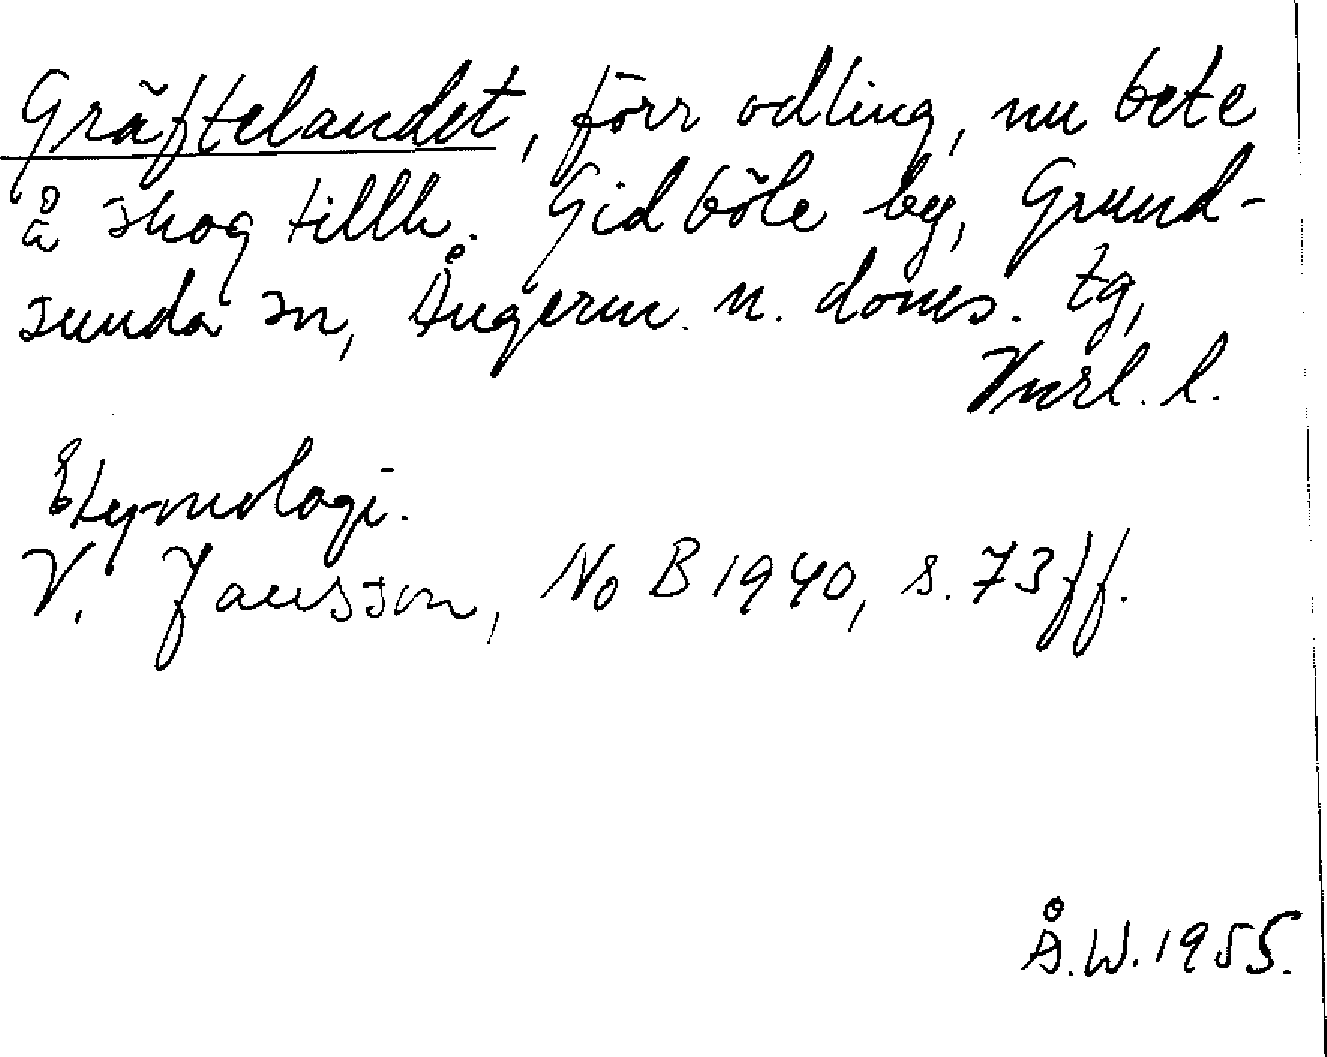 Gräftelandet, förr odling, nu bete
å skog tillh. Gidböle by, Grund-
sunda sn, Ångerm. n. doms. tg,
Vnrl. l.
Etymologi.
V. Jansson, No B 1940, s. 73 ff.
Å.W. 1955.